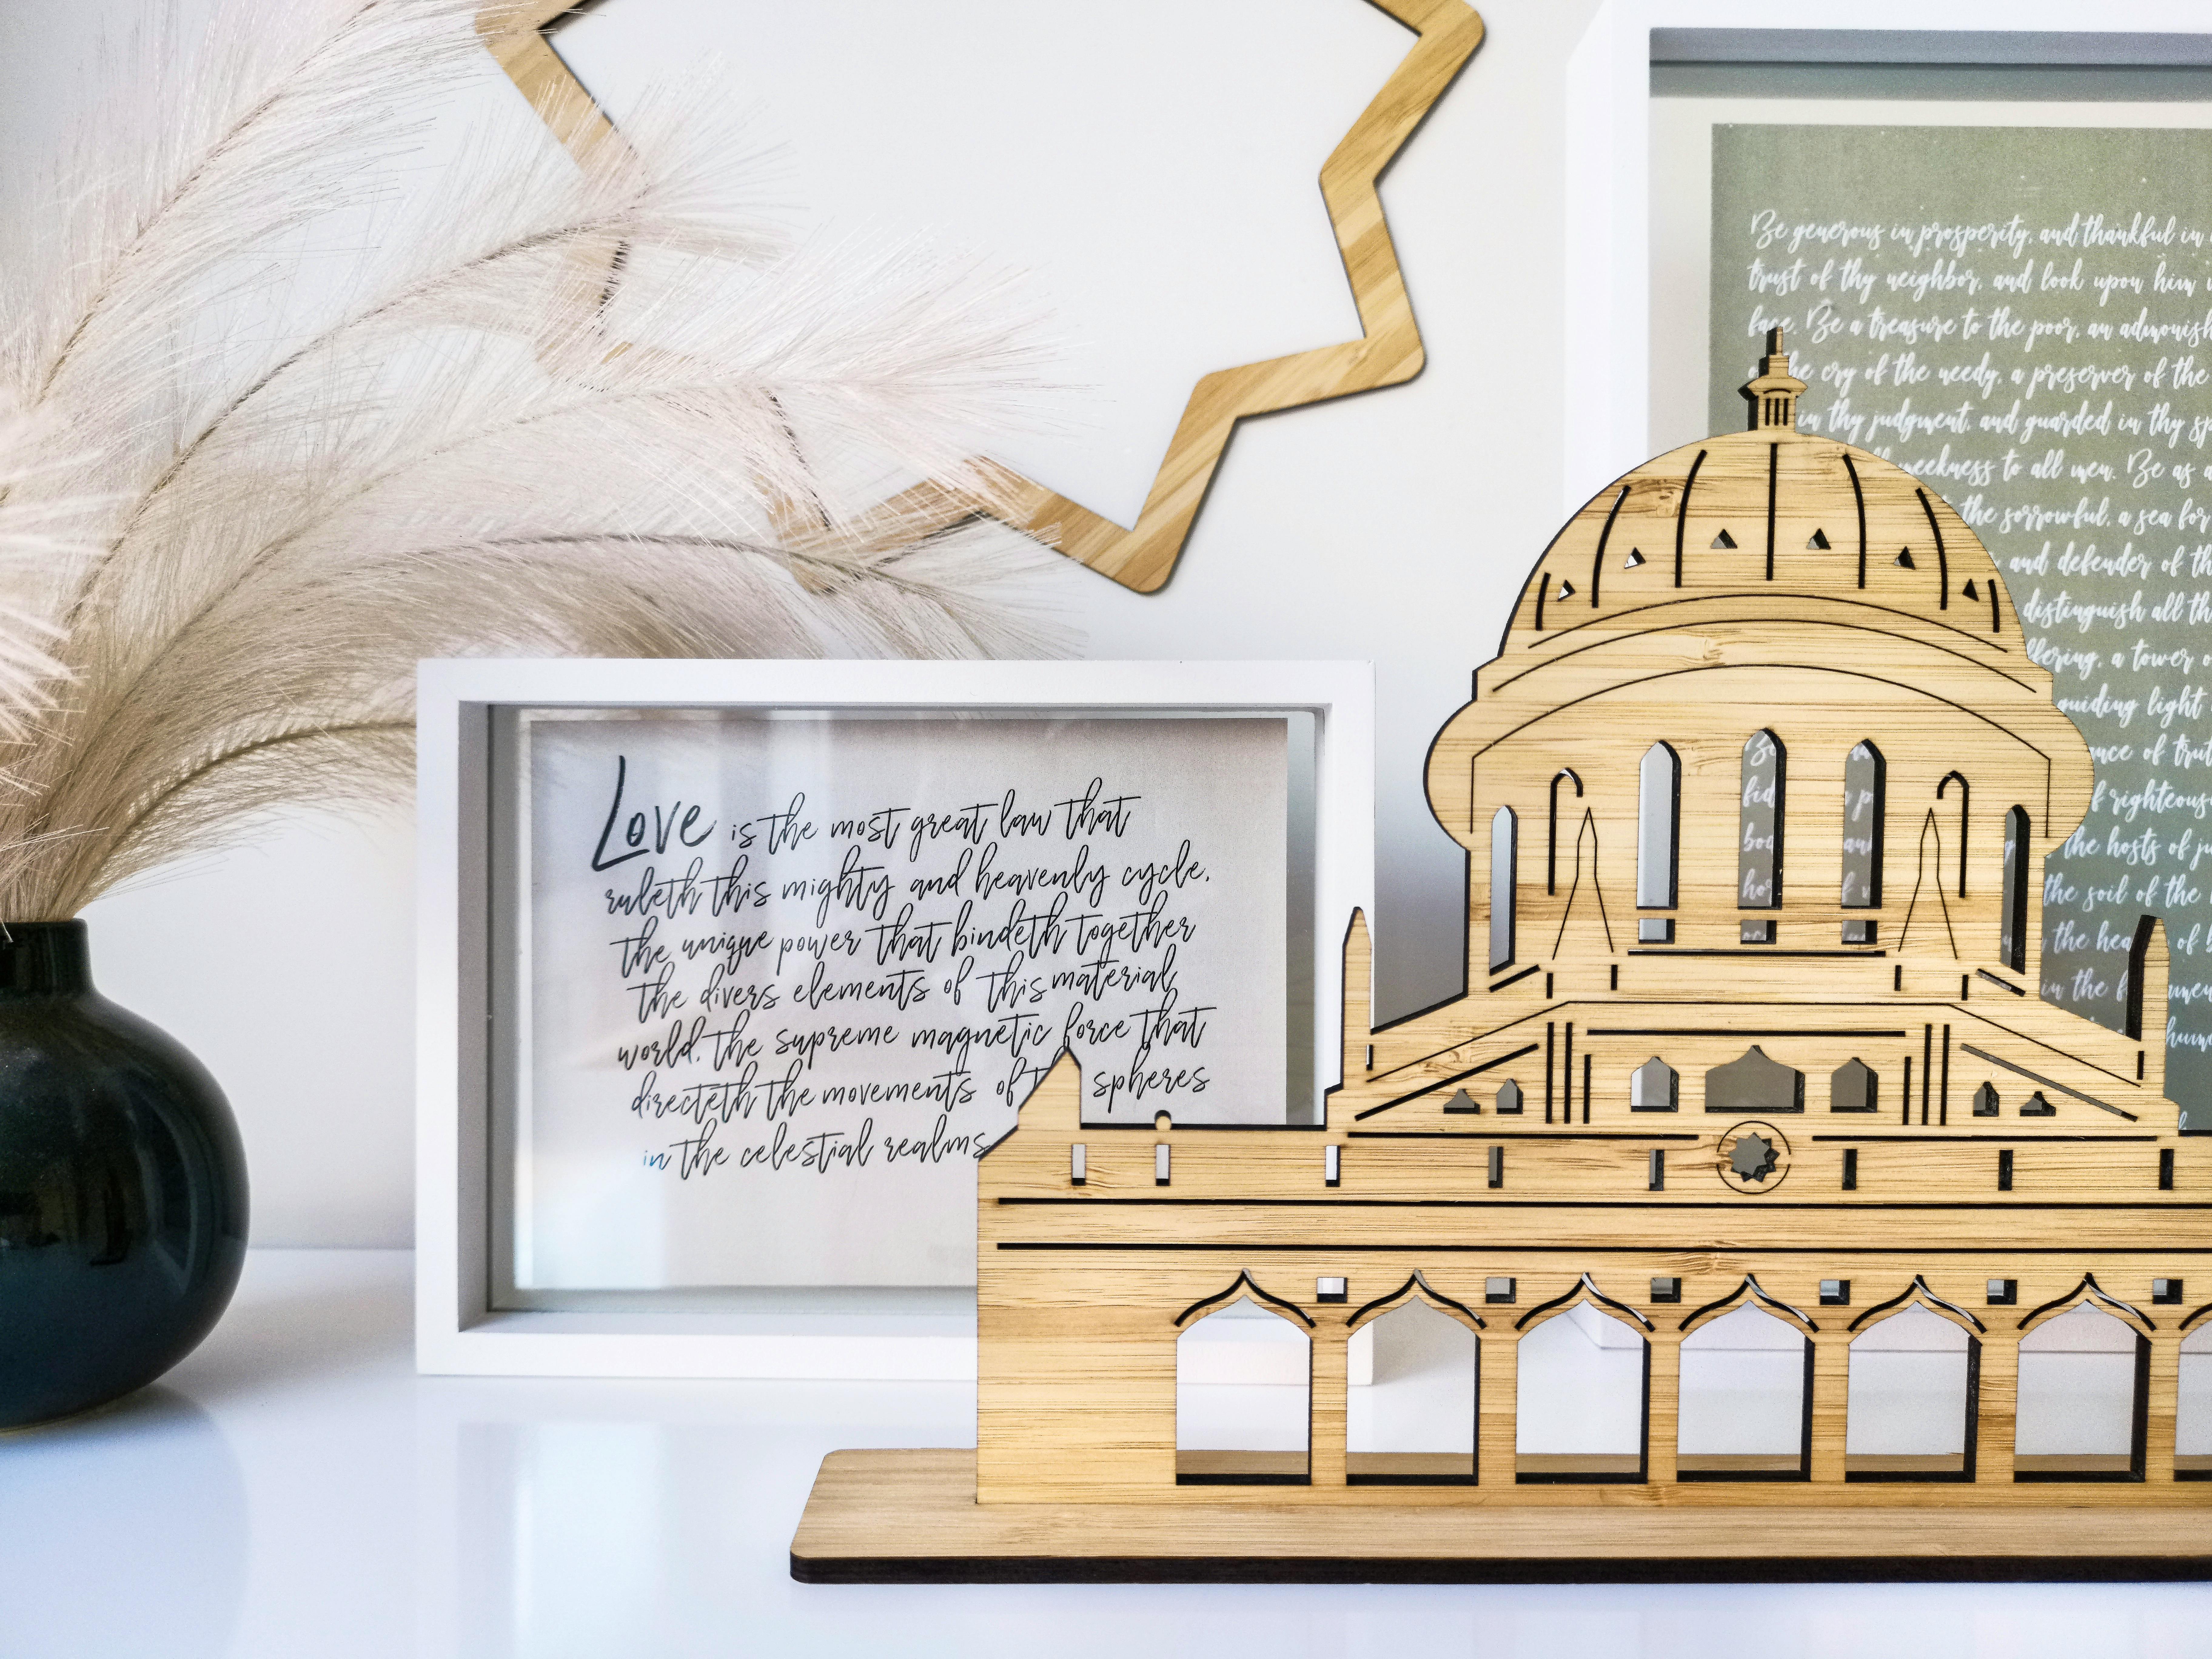 Love is the most great law that
ruleth this mighty and heavenly cycle,
the unique power that bindeth together
the divers elements of this material
world, the supreme magnetic force that
directeth the movements of spheres
in the celestial realms
Be generous in prosperity, and thankful in
trust of thy neighbor, and look upon him
face. Be a treasure to the poor, an admonish
the cry of the needy, a preserver of the
in thy judgment, and guarded in thy sp
meekness to all men. Be as
the sorrowful, a sea for
and defender of th
distinguish all th
ffering, a tower o
guiding light
Be nce of trut
fid f righteous
the hosts of ju
the soil of the
the hea of
in the f